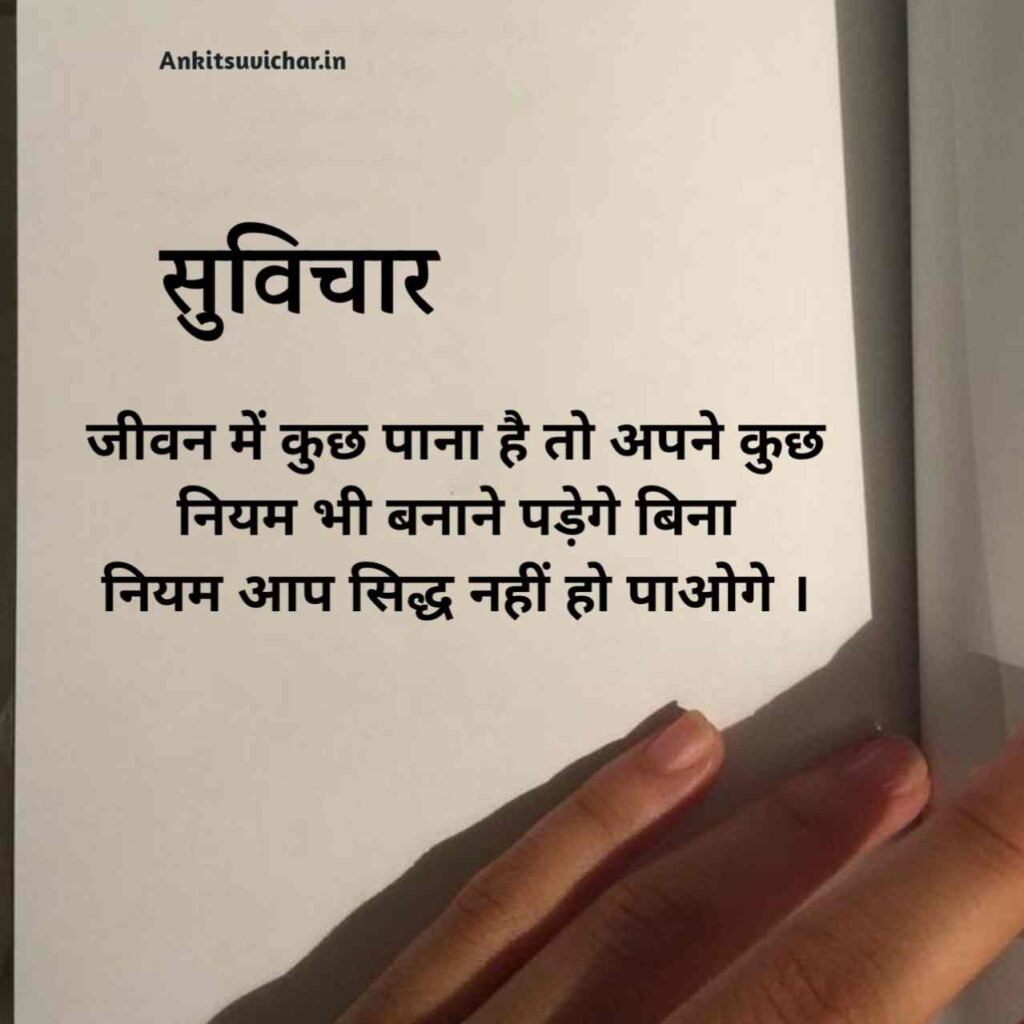 Ankitsuvichar.in
सुविचार
जीवन में कुछ पाना है तो अपने कुछ
नियम भी बनाने पड़ेगे बिना
नियम आप सिद्ध नहीं हो पाओगे ।